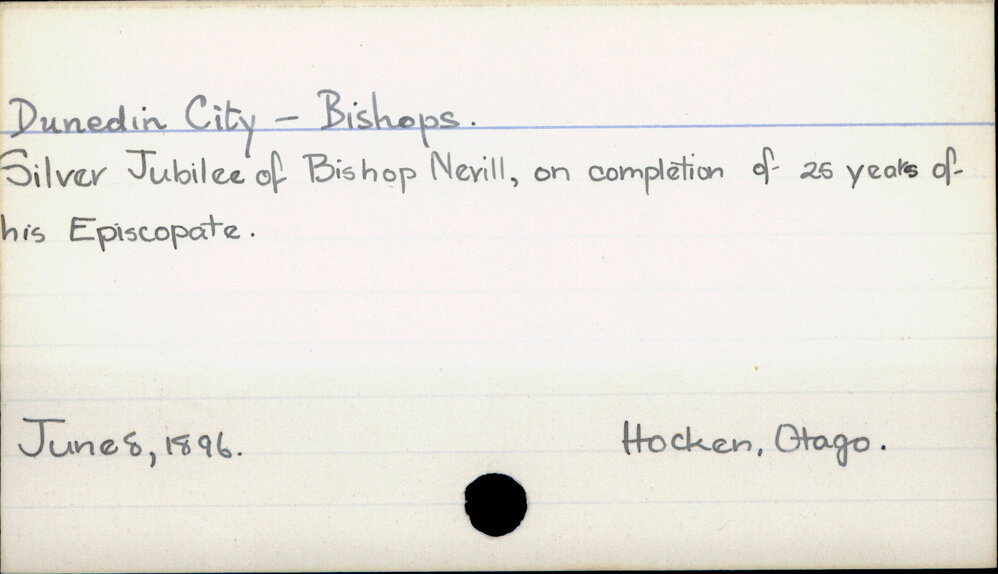 Dunedin City – Bishops.
Silver Jubilee of Bishop Nevill, on completion of 25 years of
his Episcopate.
June 8, 1896.
Hocken, Otago.